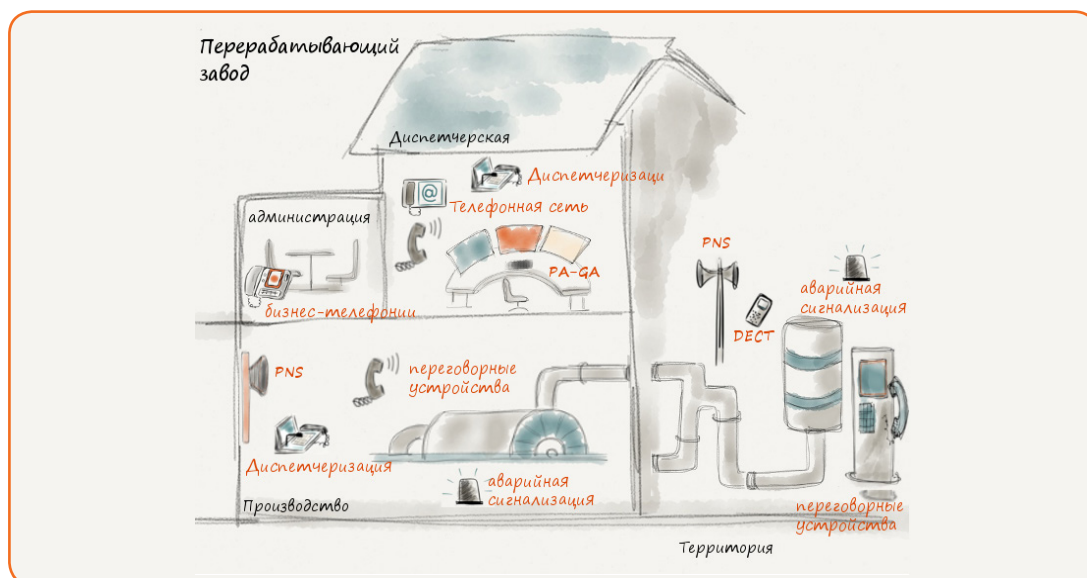 Перерабатывающий
завод
Диспетчерская
Диспетчеризаци
Телефонная сеть
администрация
PA-GA
бизнес-телефонии
PNS
аварийная
сигнализация
DECT
PNS
переговорные
устройства
Диспетчеризация
аварийная
сигнализация
Производство
переговорные
устройства
Территория